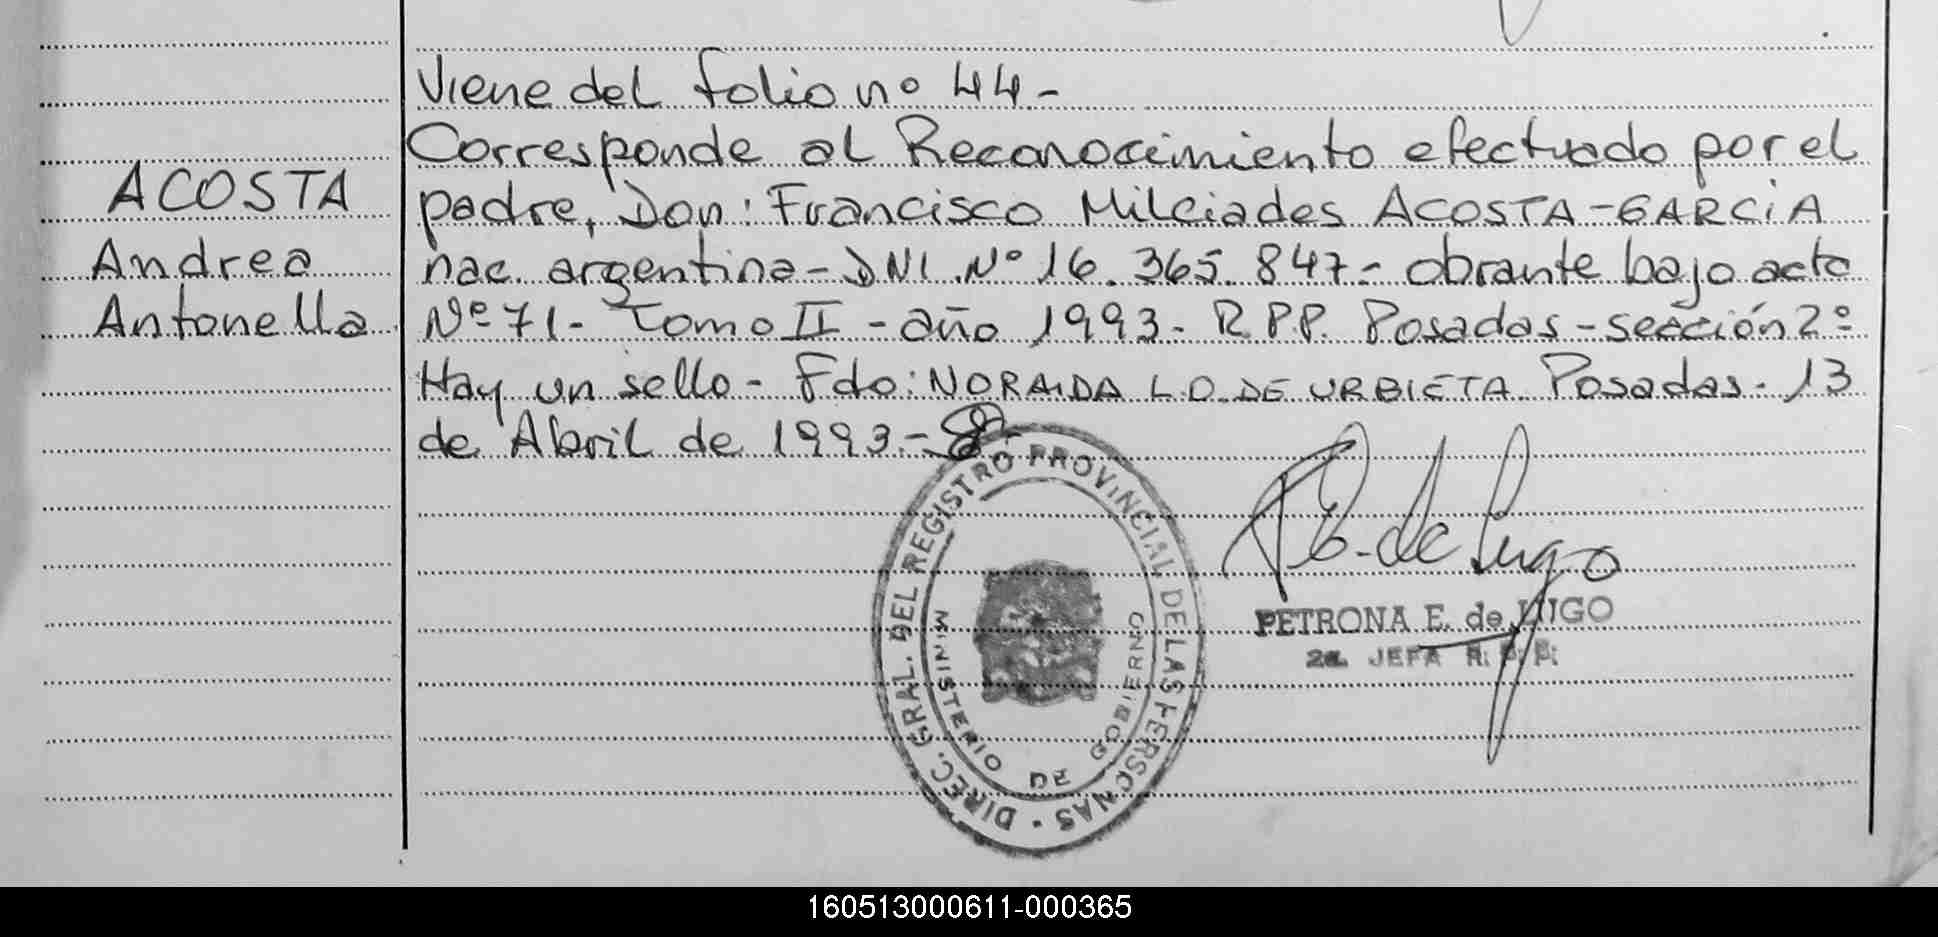 Viene del folio nº 44-
Corresponde al Reconocimiento efectuado por el
ACOSTA
padre, Don: Francisco Milciades ACOSTA-GARCiA
Andrea
nac. argentina- DNI. Nº 16.365.847- obrante bajo acta
Antonella
Nº 71- Tomo II - año 1993- R.P.P. Posadas - sección 2º
Hay un sello- Fdo: NORAIDA L.O. DE URBIETA Posadas- 13
de Abril de 1993.-
DIREC. GRAL. DEL REGISTRO PROVINCIAL DE LAS PERSONAS
MINISTERIO DE GOBIERNO
P E. de Lugo
PETRONA E. de LUGO
2a. JEFA R. P. P.
160513000611-000365